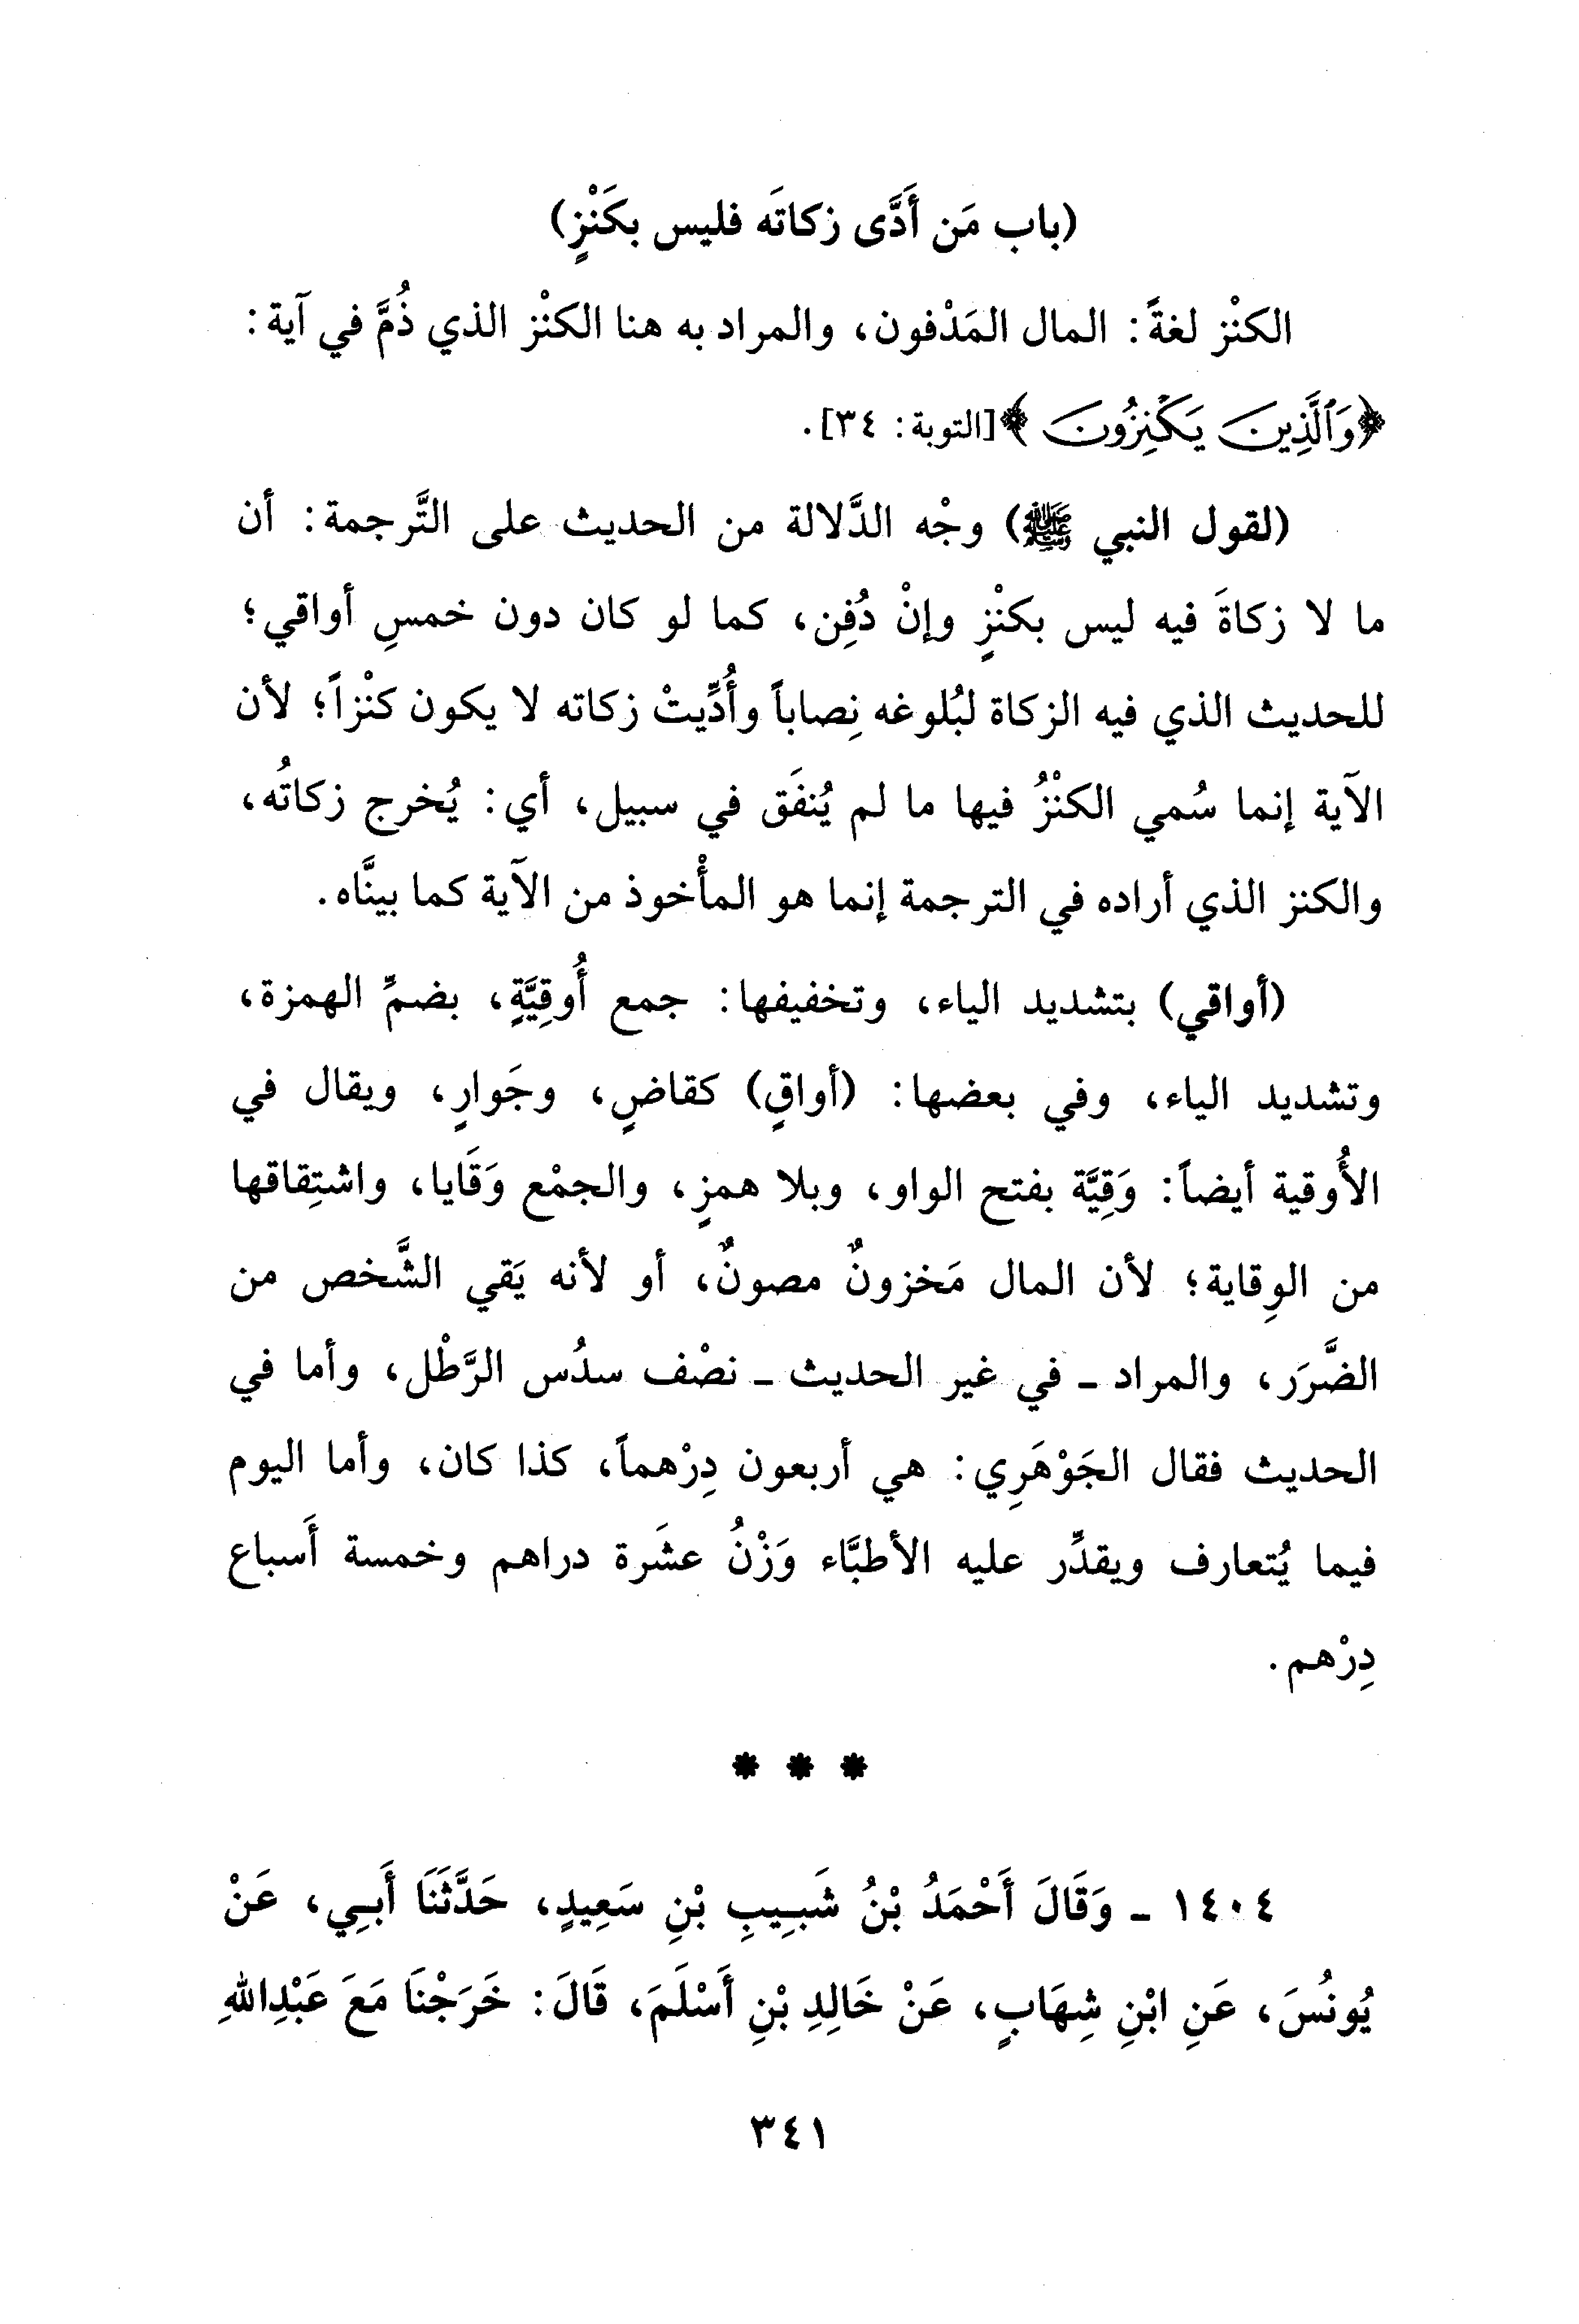 (باب مَن أَدَّى زكاتَه فليس بكَنْزٍ)
الكنْز لغةً: المال المَدْفون، والمراد به هنا الكنْز الذي ذُمَّ في آية:
﴿وَٱلَّذِينَ يَكْنِزُونَ﴾[التوبة: ٣٤].
(لقول النبي ﷺ) وجْه الدَّلالة من الحديث على التَّرجمة: أن
ما لا زكاةَ فيه ليس بكنْزٍ وإنْ دُفِن، كما لو كان دون خمسِ أواقي؛
للحديث الذي فيه الزكاة لبُلوغه نِصاباً وأُدِّيتْ زكاته لا يكون كنْزاً؛ لأن
الآية إنما سُمي الكنْزُ فيها ما لم يُنفَق في سبيل، أي: يُخرج زكاتُه،
والكنز الذي أراده في الترجمة إنما هو المأْخوذ من الآية كما بينَّاه.
(أواقي) بتشديد الياء، وتخفيفها: جمع أُوقِيَّةٍ، بضمِّ الهمزة،
وتشديد الياء، وفي بعضها: (أواقٍ) كقاضٍ، وجَوارٍ، ويقال في
الأُوقية أيضاً: وَقِيَّة بفتح الواو، وبلا همزٍ، والجمْع وَقَايا، واشتِقاقها
من الوِقاية؛ لأن المال مَخزونٌ مصونٌ، أو لأنه يَقي الشَّخص من
الضَّرَر، والمراد ـ في غير الحديث ـ نصْف سدُس الرَّطْل، وأما في
الحديث فقال الجَوْهَرِي: هي أربعون دِرْهماً، كذا كان، وأما اليوم
فيما يُتعارف ويقدِّر عليه الأطبَّاء وَزْنُ عشَرة دراهم وخمسة أَسباع
دِرْهم.
* * *
١٤٠٤ ـ وَقَالَ أَحْمَدُ بْنُ شَبِيبِ بْنِ سَعِيدٍ، حَدَّثَنَا أَبِي، عَنْ
يُونُسَ، عَنِ ابْنِ شِهَابٍ، عَنْ خَالِدِ بْنِ أَسْلَمَ، قَالَ: خَرَجْنَا مَعَ عَبْدِاللهِ
٣٤١